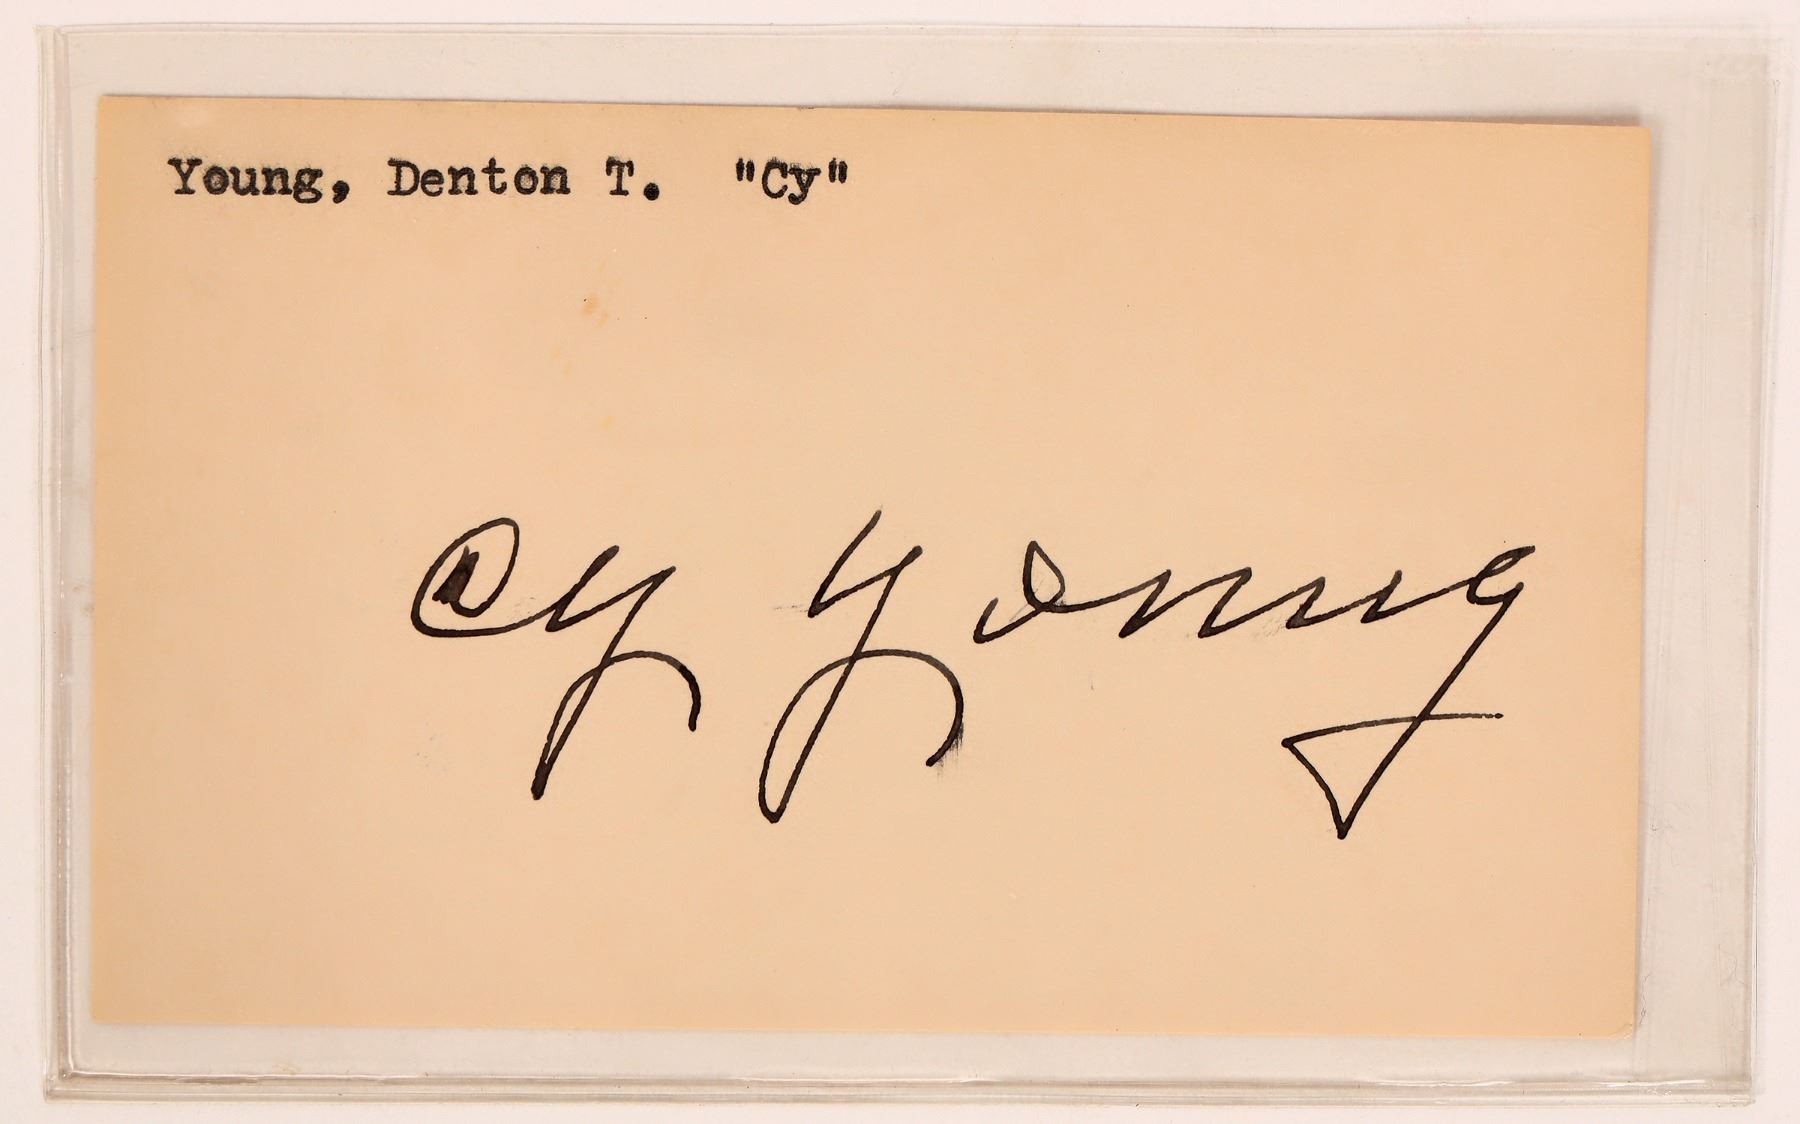 Young, Denton T. "Cy"
Cy Young